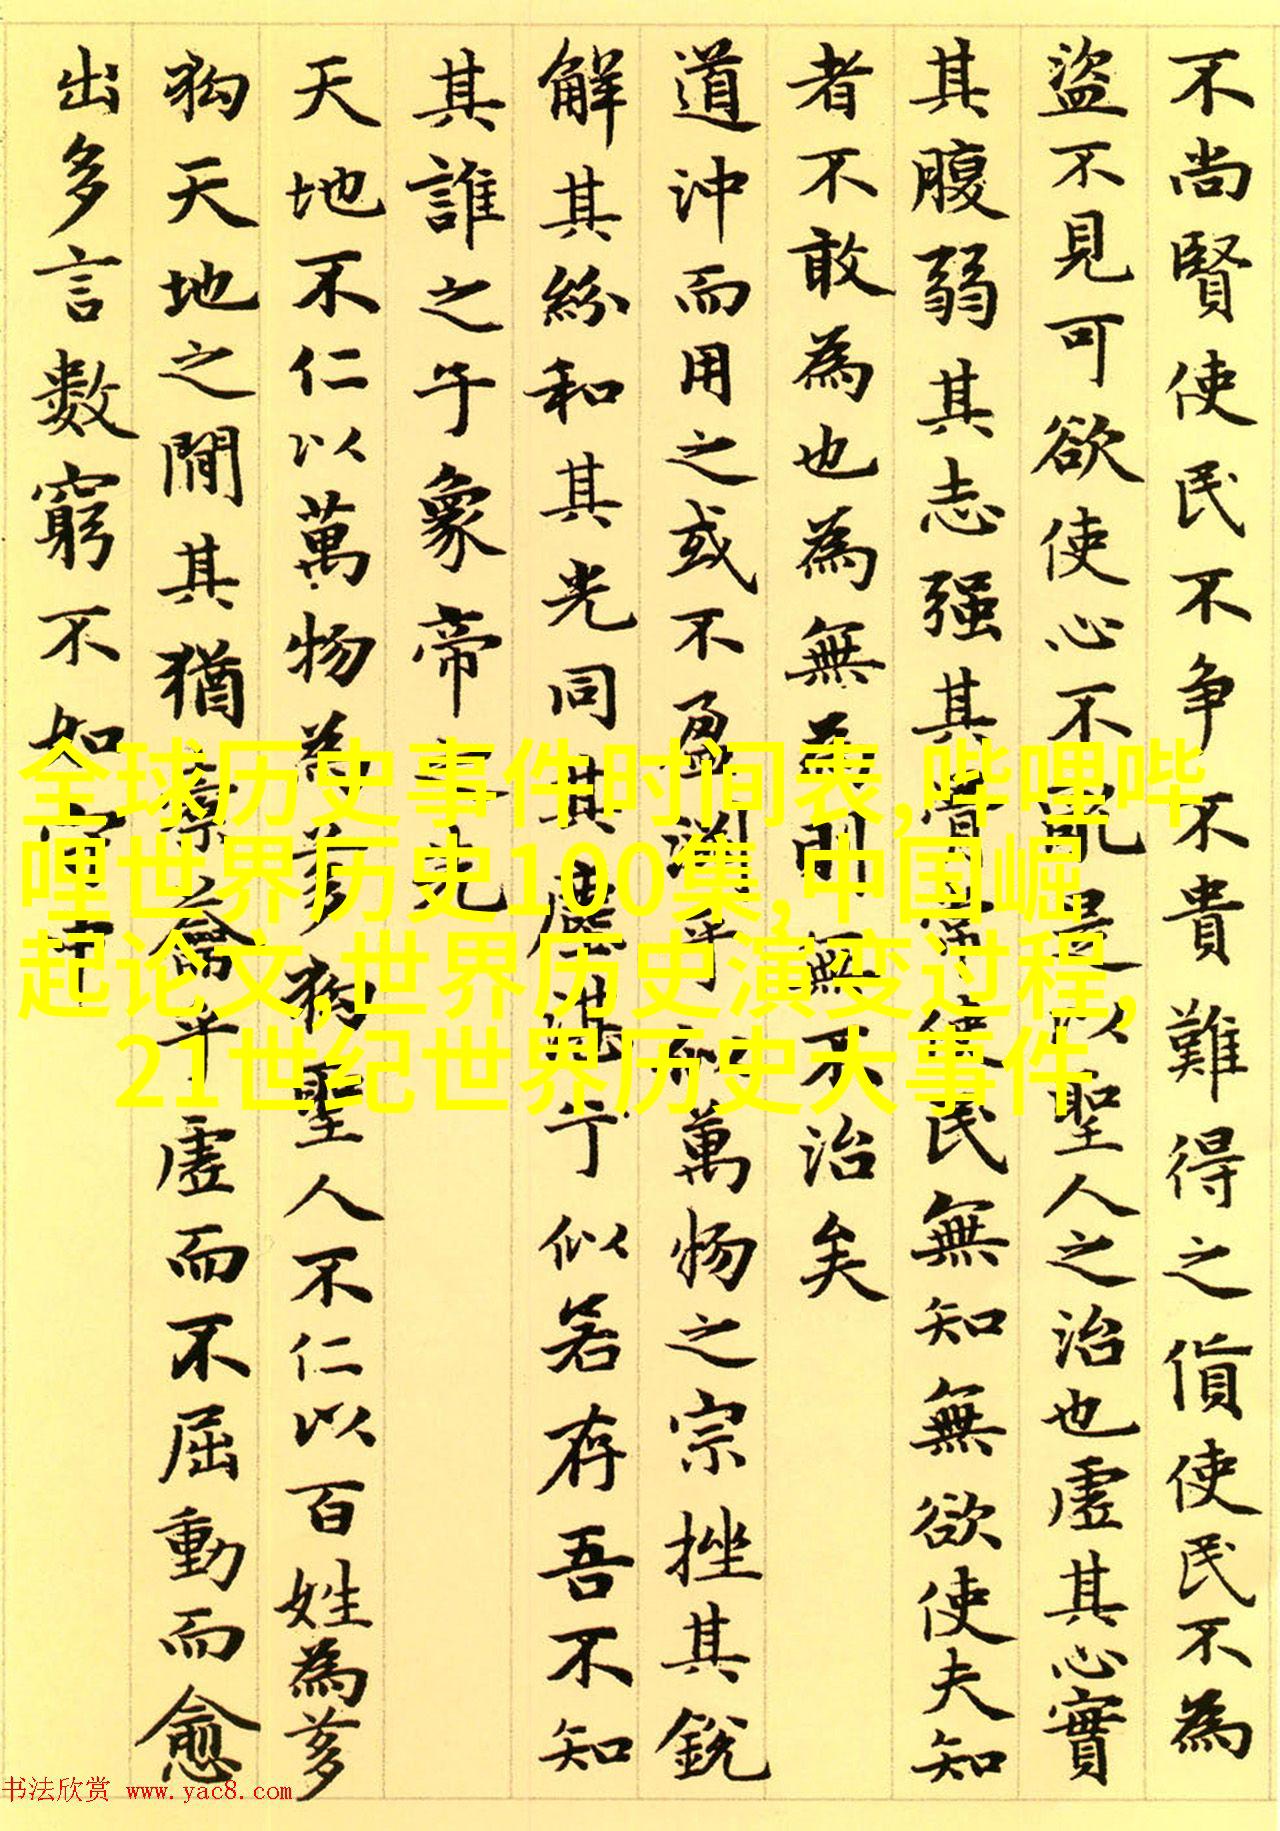 不尚賢使民不争不貴難得之貨使民不為
盜不見可欲使心不亂是以聖人之治也虛其心實
其腹弱其志强其骨常使民無知無欲使夫知
者不敢為也為無為則無不治矣
道沖而用之或不盈淵乎似萬物之宗挫其銳
解其紛和其光同其塵湛兮似若存吾不知
其誰之子象帝之先
天地不仁以萬物為芻狗聖人不仁以百姓為芻
狗天地之間其猶橐籥乎虛而不屈動而愈
出多言數窮不如守中
全球历史事件时间表,哔哩哔
哩世界历史100集,中国崛
起论文,世界历史演变过程,
21世纪世界历史大事件
书法欣赏 www.yac8.com